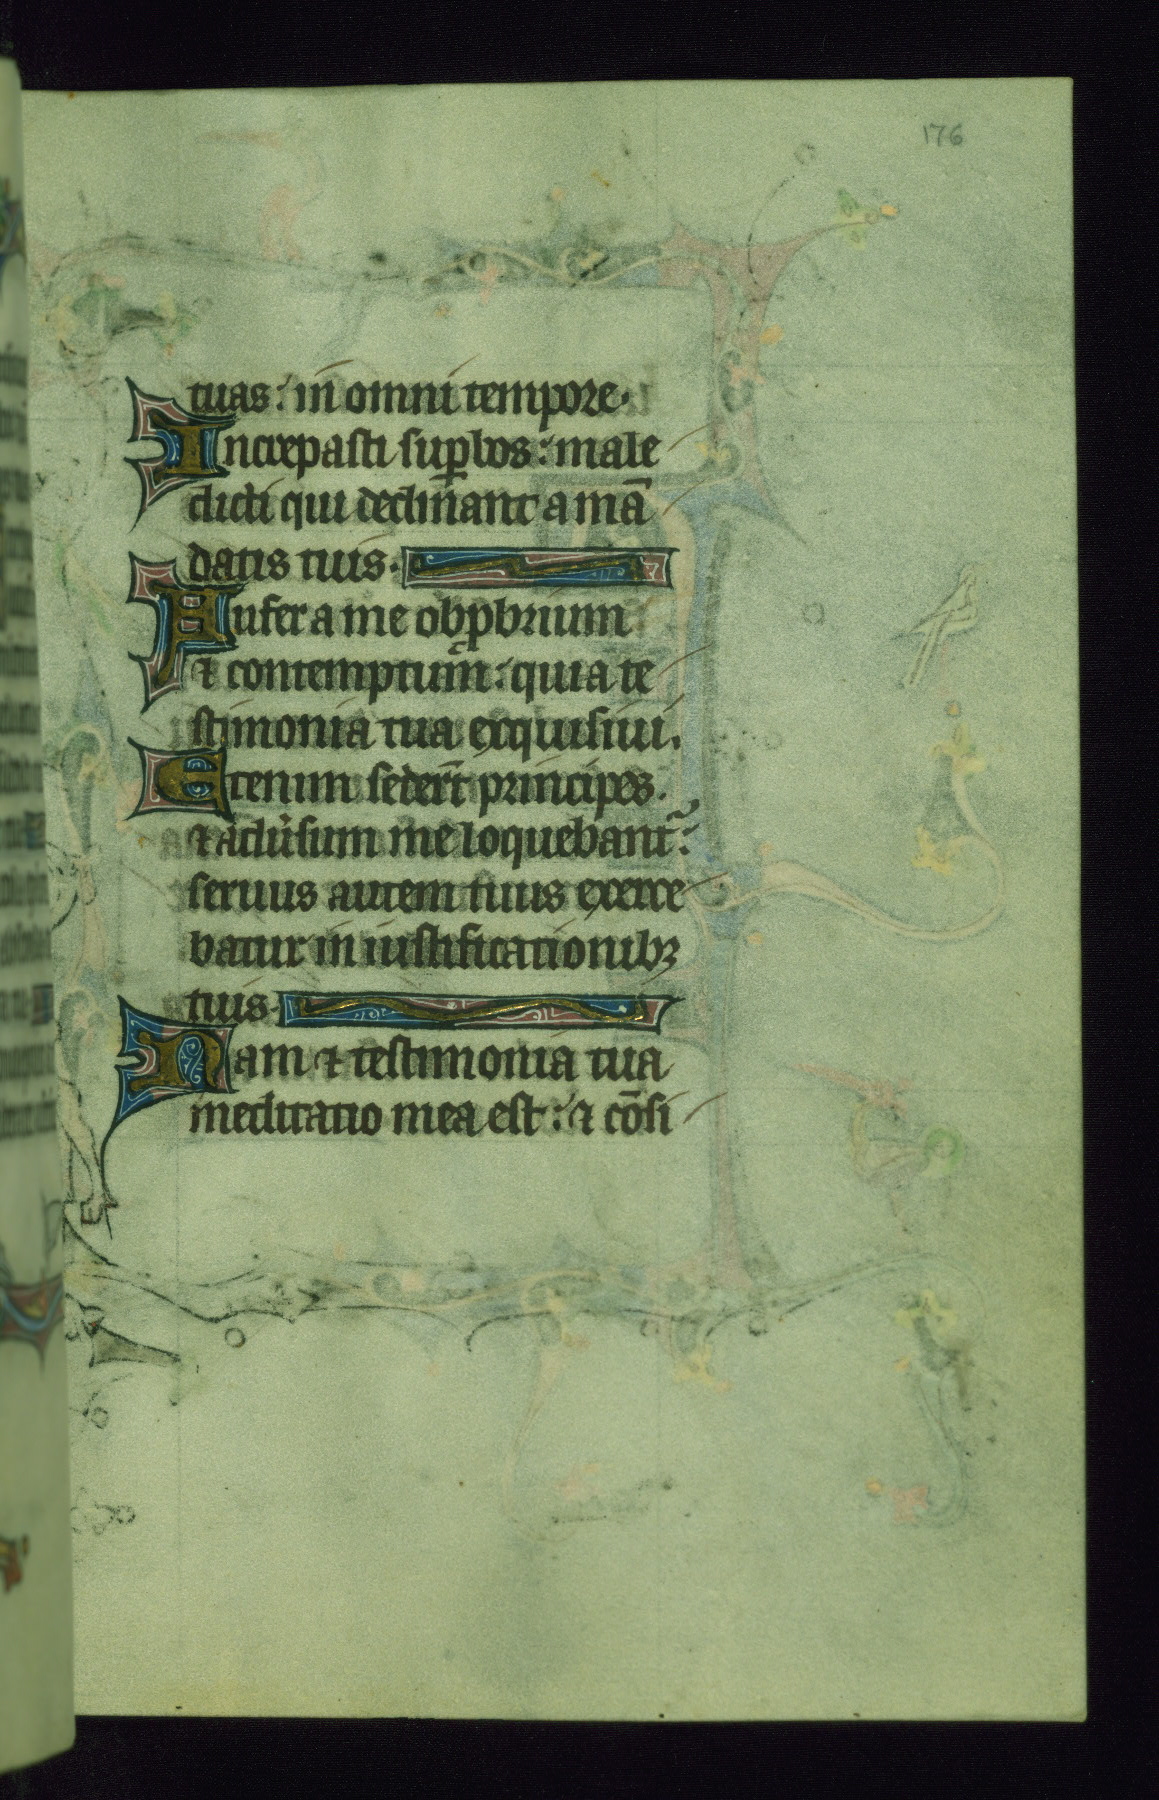 176
tuas: in omni tempore.
Increpasti suꝑbos: male
dicti qui declinant a mā
datis tuis.
Aufer a me obꝓbrium
⁊ contemptum: quia te
stimonia tua exquisiui.
Etenim sederūt principes.
⁊ aduersum me loquebant᷑:
seruus autem tuus exerce
batur in iustificationibꝫ
tuis
Nam ⁊ testimonia tua
meditatio mea est: ⁊ cōsi